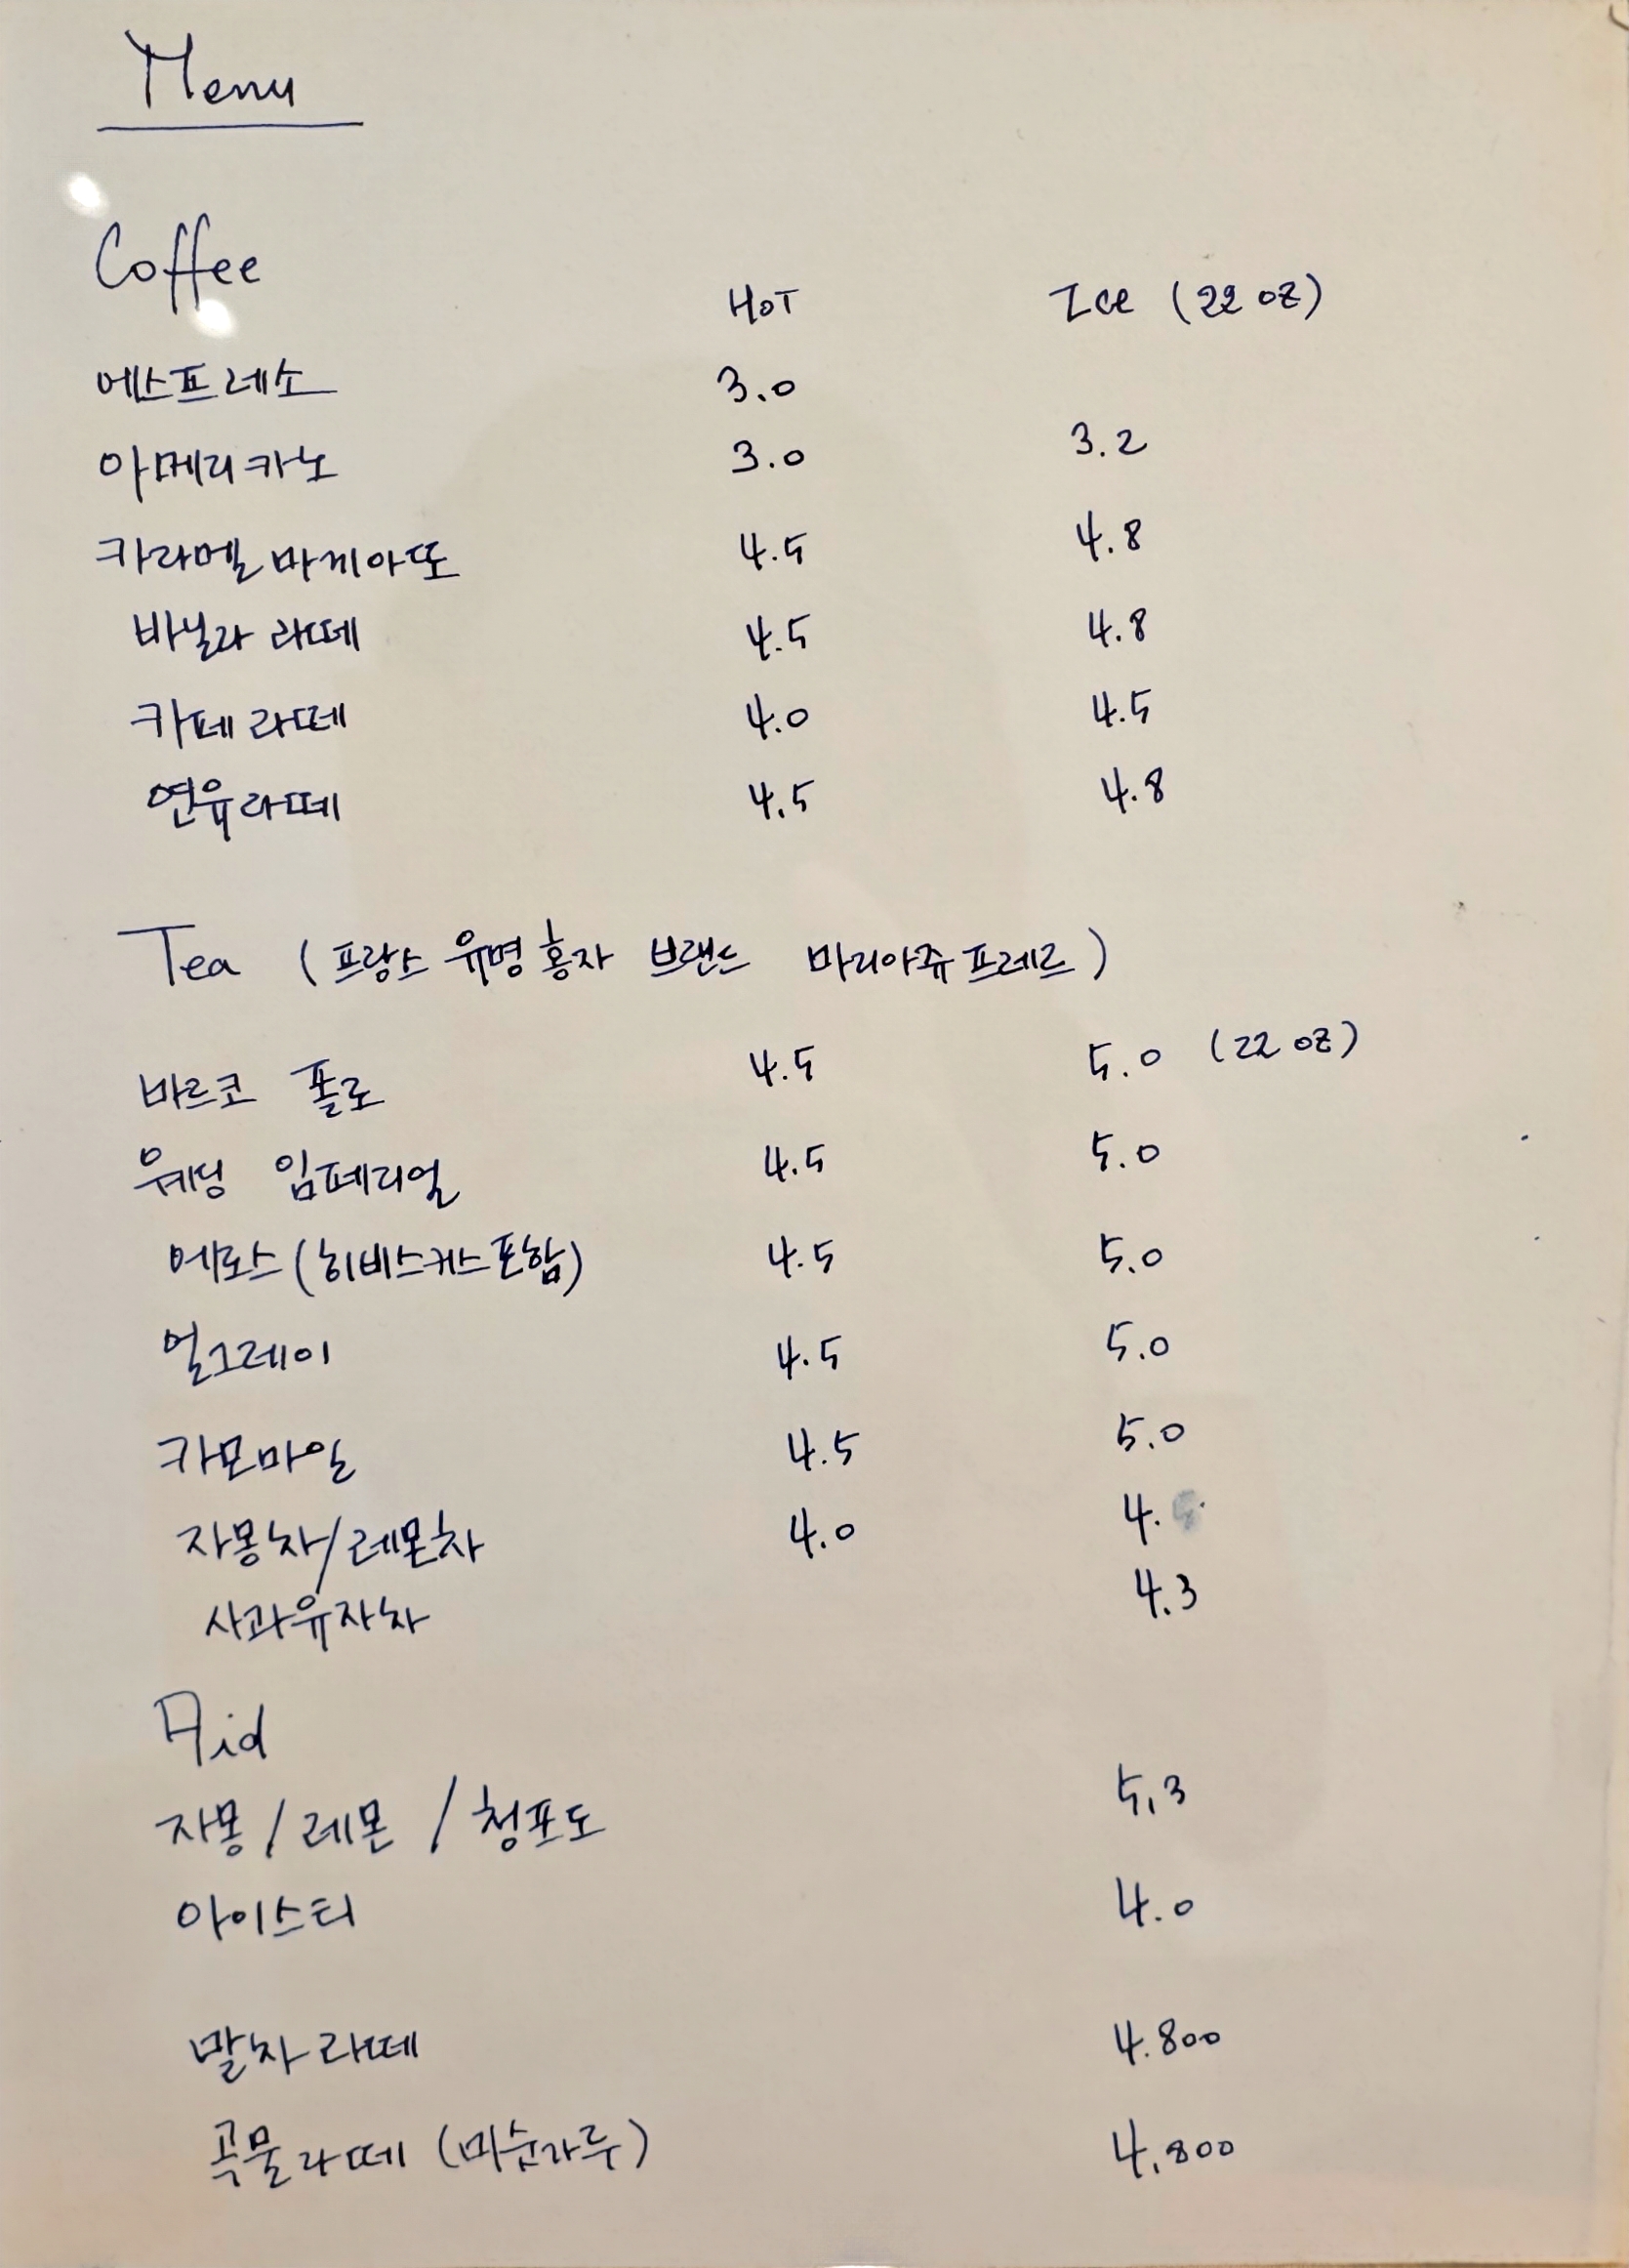 Menu
Coffee
HOT Ice (22 oz)
에스프레소 3.0
아메리카노 3.0 3.2
카라멜 마끼아또 4.5 4.8
바닐라 라떼 4.5 4.8
카페 라떼 4.0 4.5
연유라떼 4.5 4.8
Tea (프랑스 유명 홍차 브랜드 마리아쥬 프레르)
마르코 폴로 4.5 5.0 (22 oz)
웨딩 임페리얼 4.5 5.0
에로스 (히비스커스 포함) 4.5 5.0
얼그레이 4.5 5.0
카모마일 4.5 5.0
자몽차/레몬차 4.0 4.
사과유자차 4.3
Aid
자몽 / 레몬 / 청포도 5.3
아이스티 4.0
말차 라떼 4.800
곡물라떼 (미숫가루) 4.800